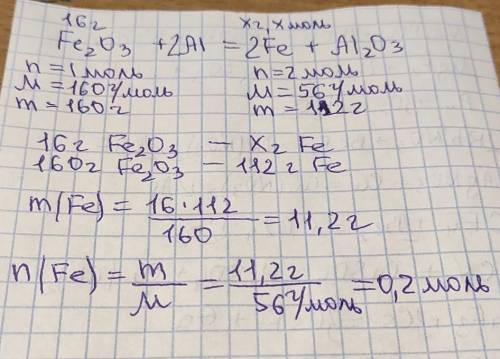 16г xг, x моль
Fe₂O₃ + 2Al = 2Fe + Al₂O₃
n = 1 моль n = 2 моль
M = 160 г/моль M = 56 г/моль
m = 160 г m = 112 г
16г Fe₂O₃ — xг Fe
160г Fe₂O₃ — 112 г Fe
m(Fe) = 16·112/160 = 11,2г
n(Fe) = m/M = 11,2г/56 г/моль = 0,2 моль